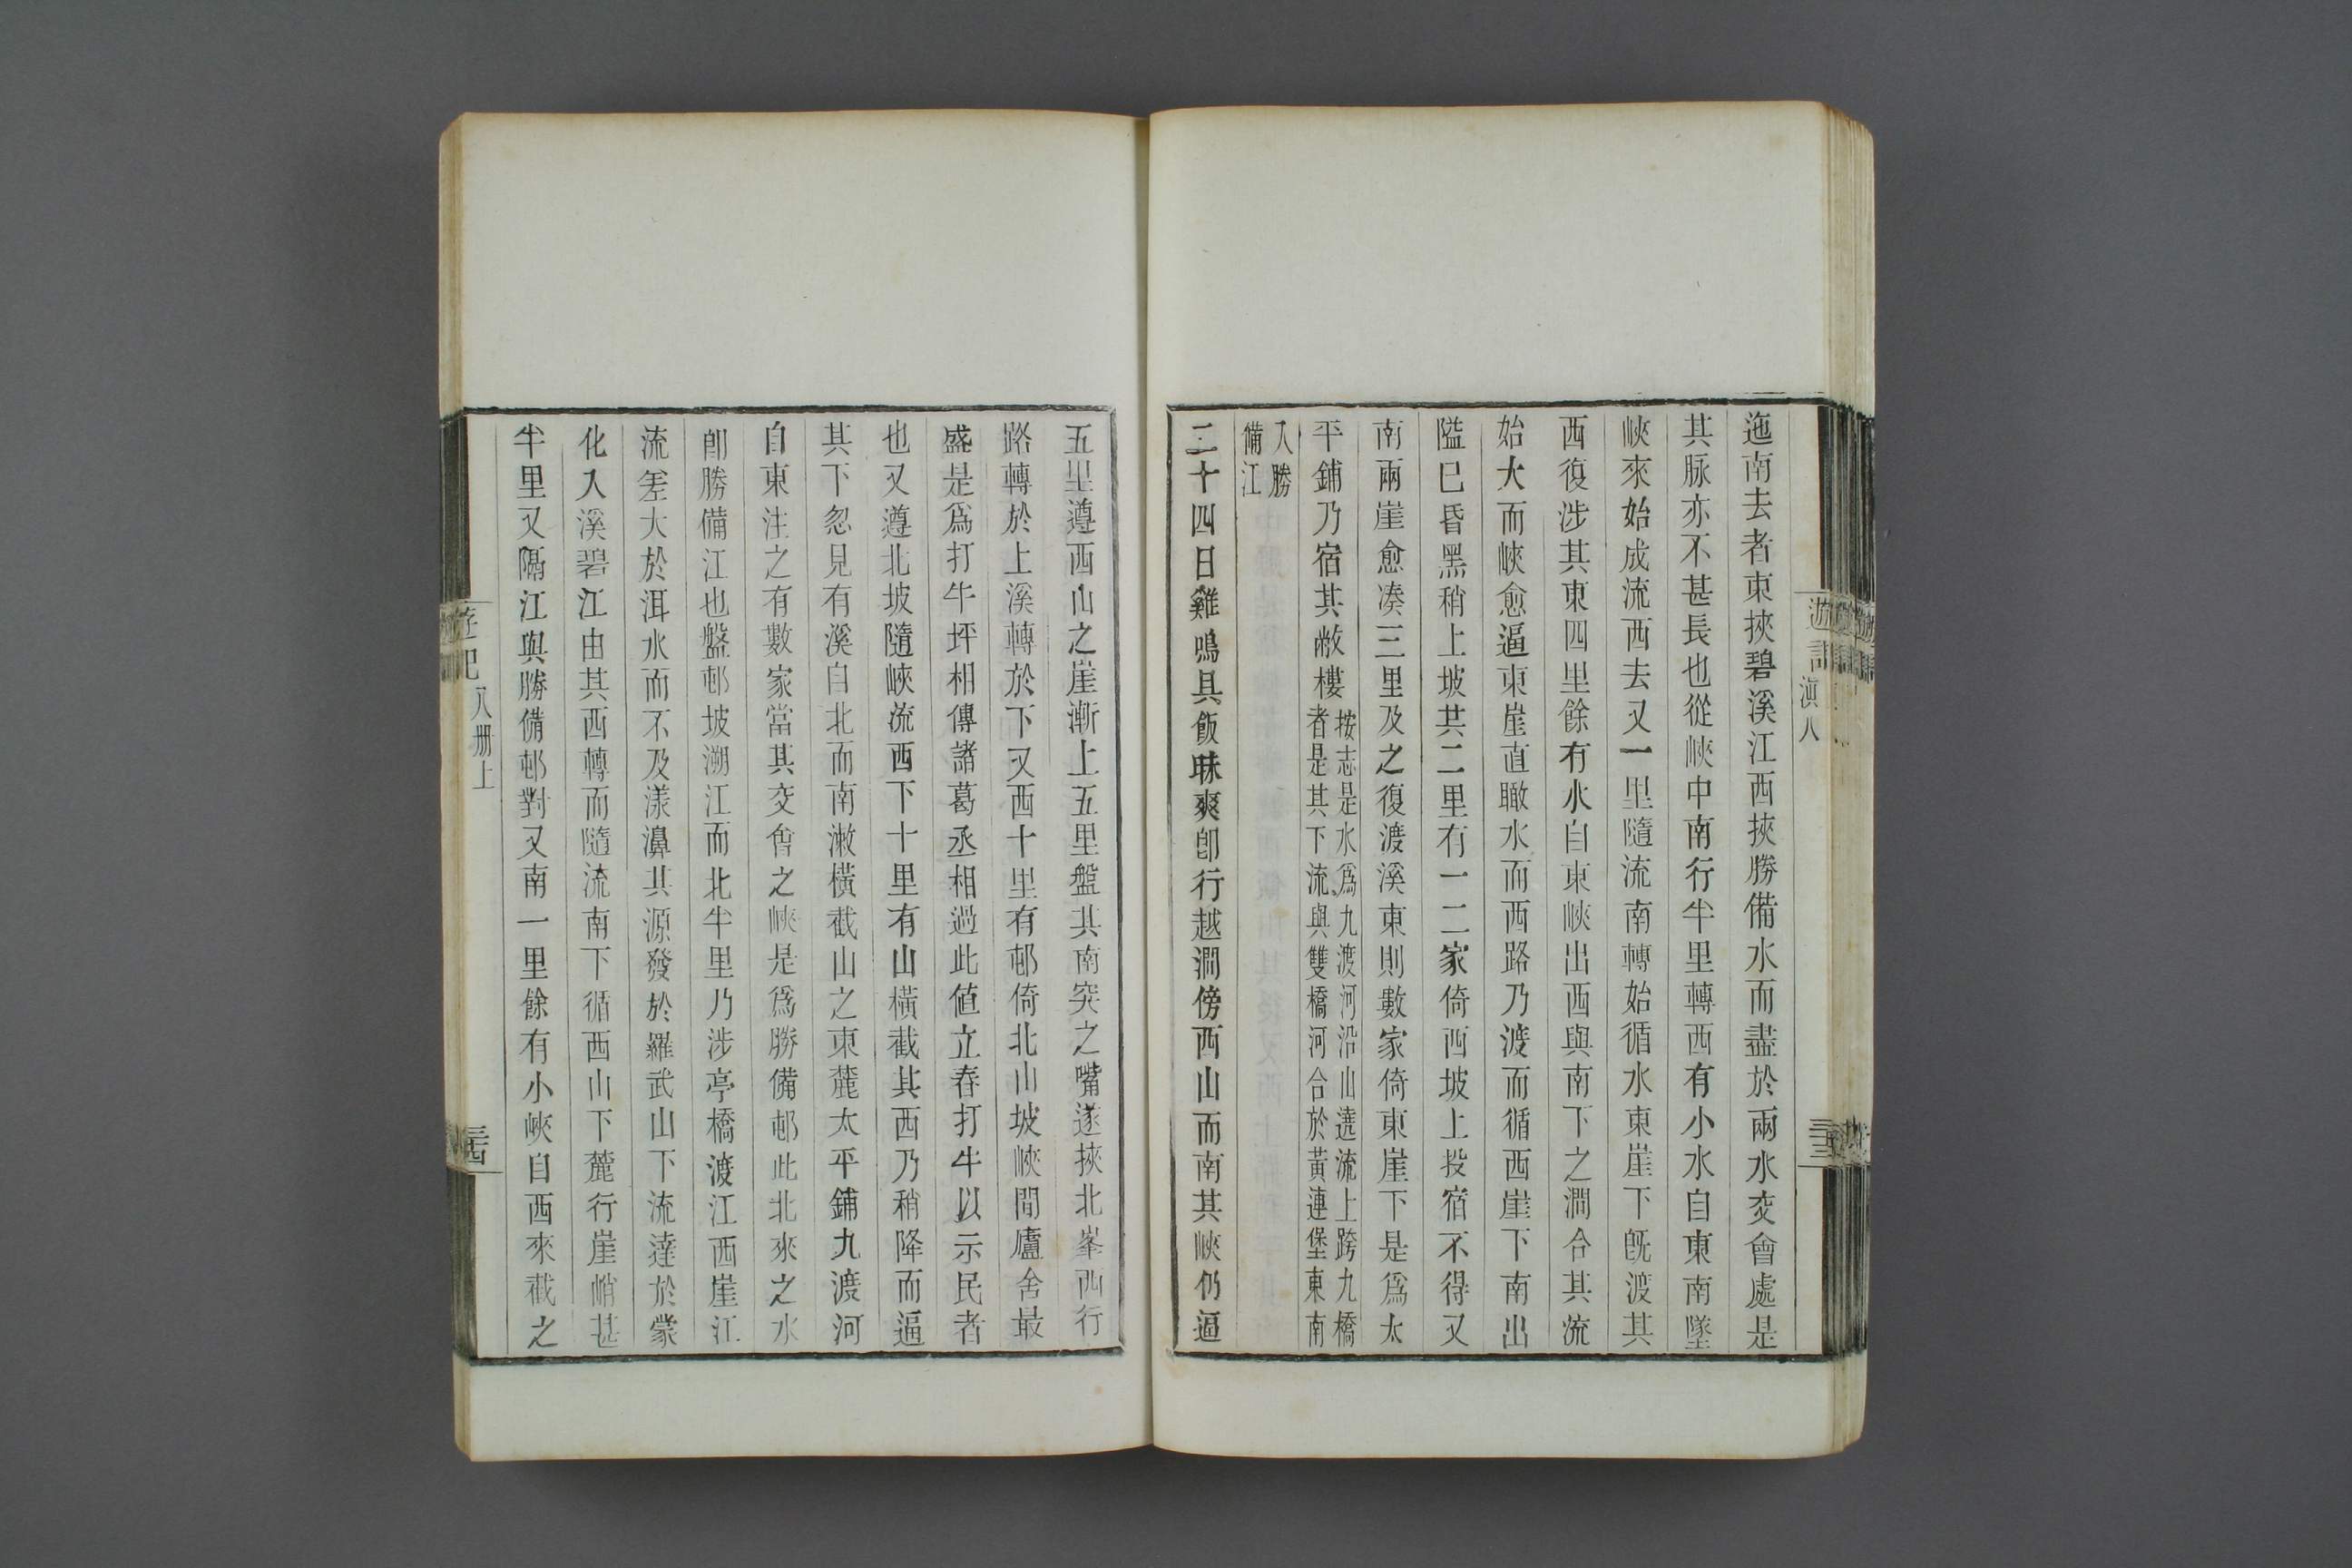 滇八
迤南去者東挾碧溪江西挾勝備水而盡於兩水交會處是
其脉亦不甚長也從峽中南行半里轉西有小水自東南墜
峽來始成流西去又一里隨流南轉始循水東崖下旣渡其
西復涉其東四里餘有水自東峽出西與南下之澗合其流
始大而峽愈逼東崖直瞰水而西路乃渡而循西崖下南出
隘巳昏黑稍上坡共二里有一二家倚西坡上投宿不得又
南兩崖愈凑三里及之復渡溪東則數家倚東崖下是爲太
平鋪乃宿其敝樓按志是水爲九渡河沿山遶流上跨九橋
者是其下流與雙橋河合於黃連堡東南
入勝
備江
二十四日雞鳴具飯昧爽卽行越澗傍西山而南其峽仍逼
五里遵西山之崖漸上五里盤其南突之嘴遂挾北峯西行
路轉於上溪轉於下又西十里有邨倚北山坡峽間廬舍最
盛是爲打牛坪相傳諸葛丞相過此値立春打牛以示民者
也又遵北坡隨峽流西下十里有山橫截其西乃稍降而逼
其下忽見有溪自北而南漱橫截山之東麓太平鋪九渡河
自東注之有數家當其交會之峽是爲勝備邨此北來之水
卽勝備江也盤邨坡溯江而北半里乃涉亭橋渡江西崖江
流差大於洱水而不及漾濞其源發於羅武山下流達於蒙
化入溪碧江由其西轉而隨流南下循西山下麓行崖峭甚
半里又隔江與勝備邨對又南一里餘有小峽自西來截之
遊記
八册上
三十四